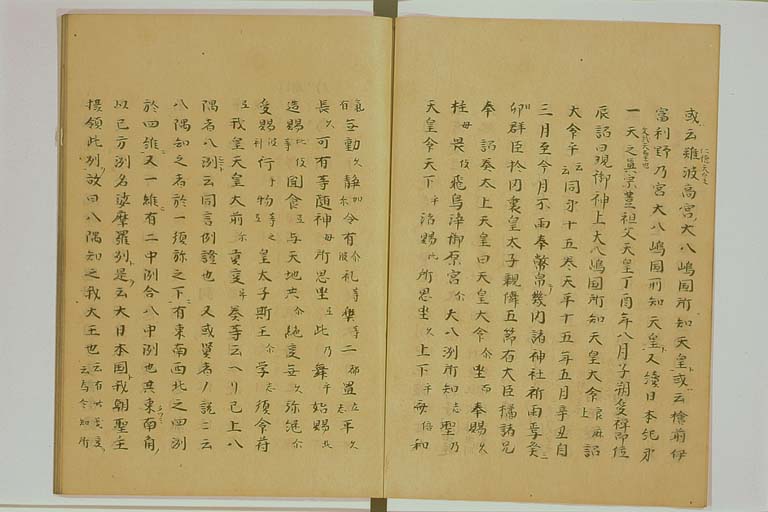 或云難波高宮大八嶋国所知天皇或云檜前伊
富利野乃宮大八嶋国所知天皇又續日本紀第
一天之真宗豊祖父天皇丁酉年八月子朔受禅即位
辰詔曰現御神止大八嶋国所知天皇大命
大命云同第十五巻天平十五年五月辛丑自
三月至今月不雨奉幣帛畿内諸神社祈雨焉癸
卯群臣於内裏皇太子親儛五節右大臣橘諸兄
奉詔奏太上天皇曰天皇大命尓坐西奉賜久
柱母畏伎飛鳥浄御原宮尓大八洲所知志聖乃
天皇命天下乎治賜比所思坐久上下乎斉倍和
有無動久静加令有尓波礼等樂等二都並志平久
長久可有等随神母所思坐此乃舞乎始賜比
造賜比伎聞食与天地共尓絶事無久弥継尓
受賜波利行牟物等皇太子斯王尓学志頂令荷
我皇天皇大前尓貢事奏等云ヘリ已上八
隅者八洲云同言例證也又或愚者ノ説ニ云
八隅知之者於一須弥之下有東南西北之四洲
於四維又一維有二中洲合八中洲也其東南角
以已方洲名遮摩羅洲是云大日本国我朝聖主
揚領此洲故曰八隅知之我大王也